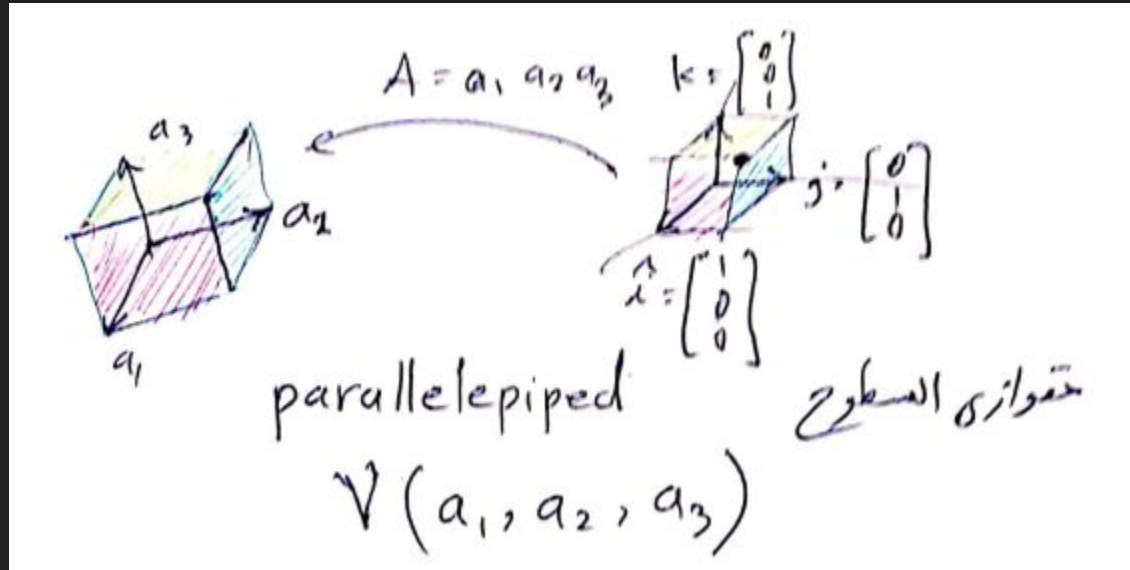 A = a₁ a₂ a₃
k = [0 0 1]
a₃
a₂
j = [0 1 0]
î = [1 0 0]
a₁
parallelepiped
متوازی السطوح
V(a₁, a₂, a₃)